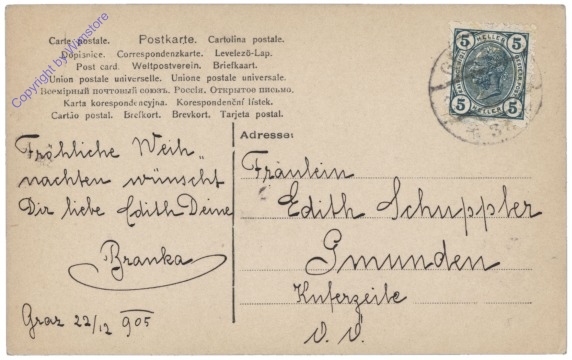 Carte postale. Postkarte. Cartolina postale.
Dopisnice. Correspondenzkarte. Levelező-Lap.
Post card. Weltpostverein. Briefkaart.
Union postale universelle. Unione postale universale.
Всемірный почтовый союзъ. Россія. Открытое письмо.
Karta korespondencyjna. Korespondenční lístek.
Cartão postal. Brefkort. Brevkort. Tarjeta postal.
Copyright by Wanstore
5 HELLER 5
5 HELLER 5
Adresse:
Fröhliche Weih„
nachten wünscht
Dir liebe Edith Deine
Branka
Graz 22/12 905
Fräulein
Edith Schuppler
Gmunden
Kuferzeile